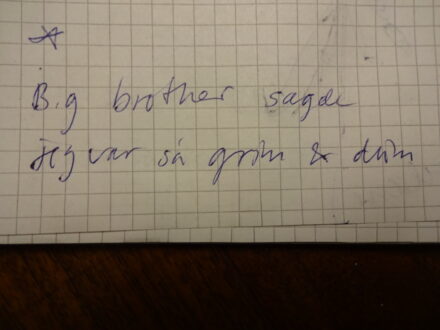 Big brother sagde
jeg var så grim & dum